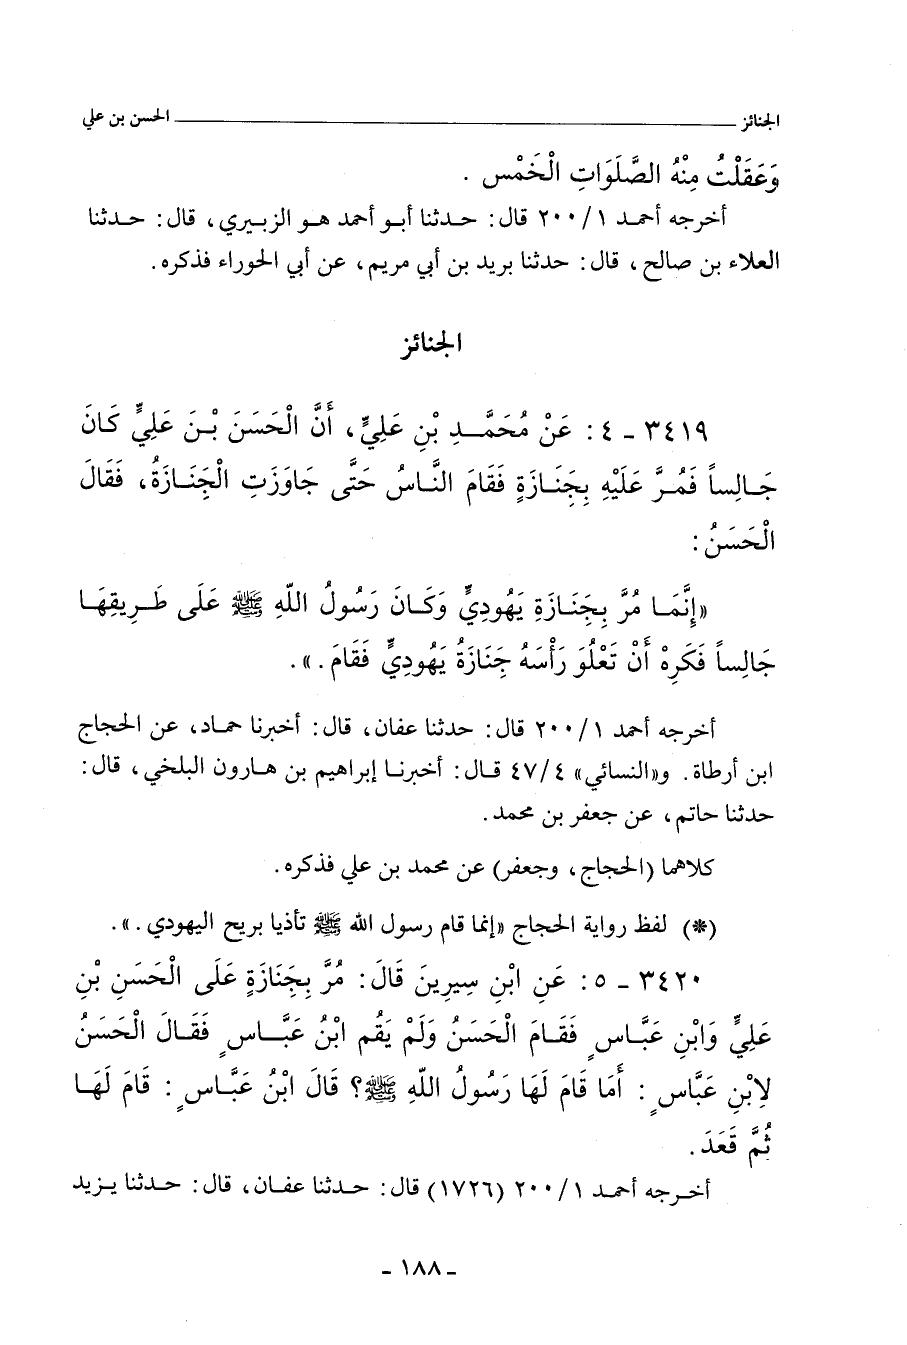 الجنائز ــــــــــــــــــــــــــــــــــــــــ الحسن بن علي
وَعَقَلْتُ مِنْهُ الصَّلَوَاتِ الْخَمْسِ .
أخرجه أحمد ٢٠٠/١ قال: حدثنا أبو أحمد هو الزبيري، قال: حدثنا
العلاء بن صالح، قال: حدثنا بريد بن أبي مريم، عن أبي الحوراء فذكره.
الجنائز
٣٤١٩ - ٤: عَنْ مُحَمَّدِ بْنِ عَلِيٍّ، أَنَّ الْحَسَنَ بْنَ عَلِيٍّ كَانَ
جَالِساً فَمُرَّ عَلَيْهِ بِجَنَازَةٍ فَقَامَ النَّاسُ حَتَّى جَاوَزَتِ الْجَنَازَةُ، فَقَالَ
الْحَسَنُ:
«إِنَّمَا مُرَّ بِجَنَازَةِ يَهُودِيٍّ وَكَانَ رَسُولُ اللّهِ ﷺ عَلَى طَرِيقِهَا
جَالِساً فَكَرِهَ أَنْ تَعْلُوَ رَأْسَهُ جَنَازَةُ يَهُودِيٍّ فَقَامَ.».
أخرجه أحمد ٢٠٠/١ قال: حدثنا عفان، قال: أخبرنا حماد، عن الحجاج
ابن أرطاة. و«النسائي» ٤٧/٤ قال: أخبرنا إبراهيم بن هارون البلخي، قال:
حدثنا حاتم، عن جعفر بن محمد.
كلاهما (الحجاج، وجعفر) عن محمد بن علي فذكره.
(*) لفظ رواية الحجاج «إنما قام رسول الله ﷺ تأذيا بريح اليهودي.».
٣٤٢٠ - ٥: عَنِ ابْنِ سِيرِينَ قَالَ: مُرَّ بِجَنَازَةٍ عَلَى الْحَسَنِ بْنِ
عَلِيٍّ وَابْنِ عَبَّاسٍ فَقَامَ الْحَسَنُ وَلَمْ يَقُمِ ابْنُ عَبَّاسٍ فَقَالَ الْحَسَنُ
لِابْنِ عَبَّاسٍ: أَمَا قَامَ لَهَا رَسُولُ اللّهِ ﷺ؟ قَالَ ابْنُ عَبَّاسٍ: قَامَ لَهَا
ثُمَّ قَعَدَ.
أخرجه أحمد ٢٠٠/١ (١٧٢٦) قال: حدثنا عفان، قال: حدثنا يزيد
- ١٨٨ -